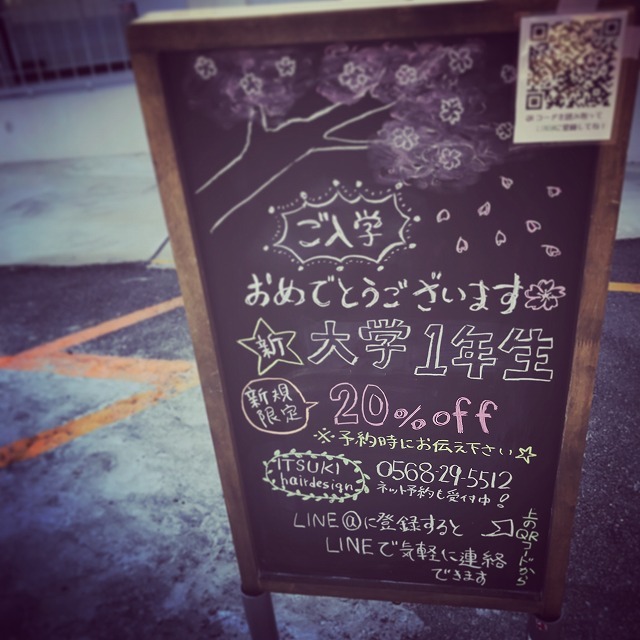 ご入学
おめでとうございます
新 大学1年生
新規
限定
20%off
※予約時にお伝え下さい☆
ITSUKI
hairdesign
0568-29-5512
ネット予約も受付中!
LINE@に登録すると
LINEで気軽に連絡
できます
上のQRコードから